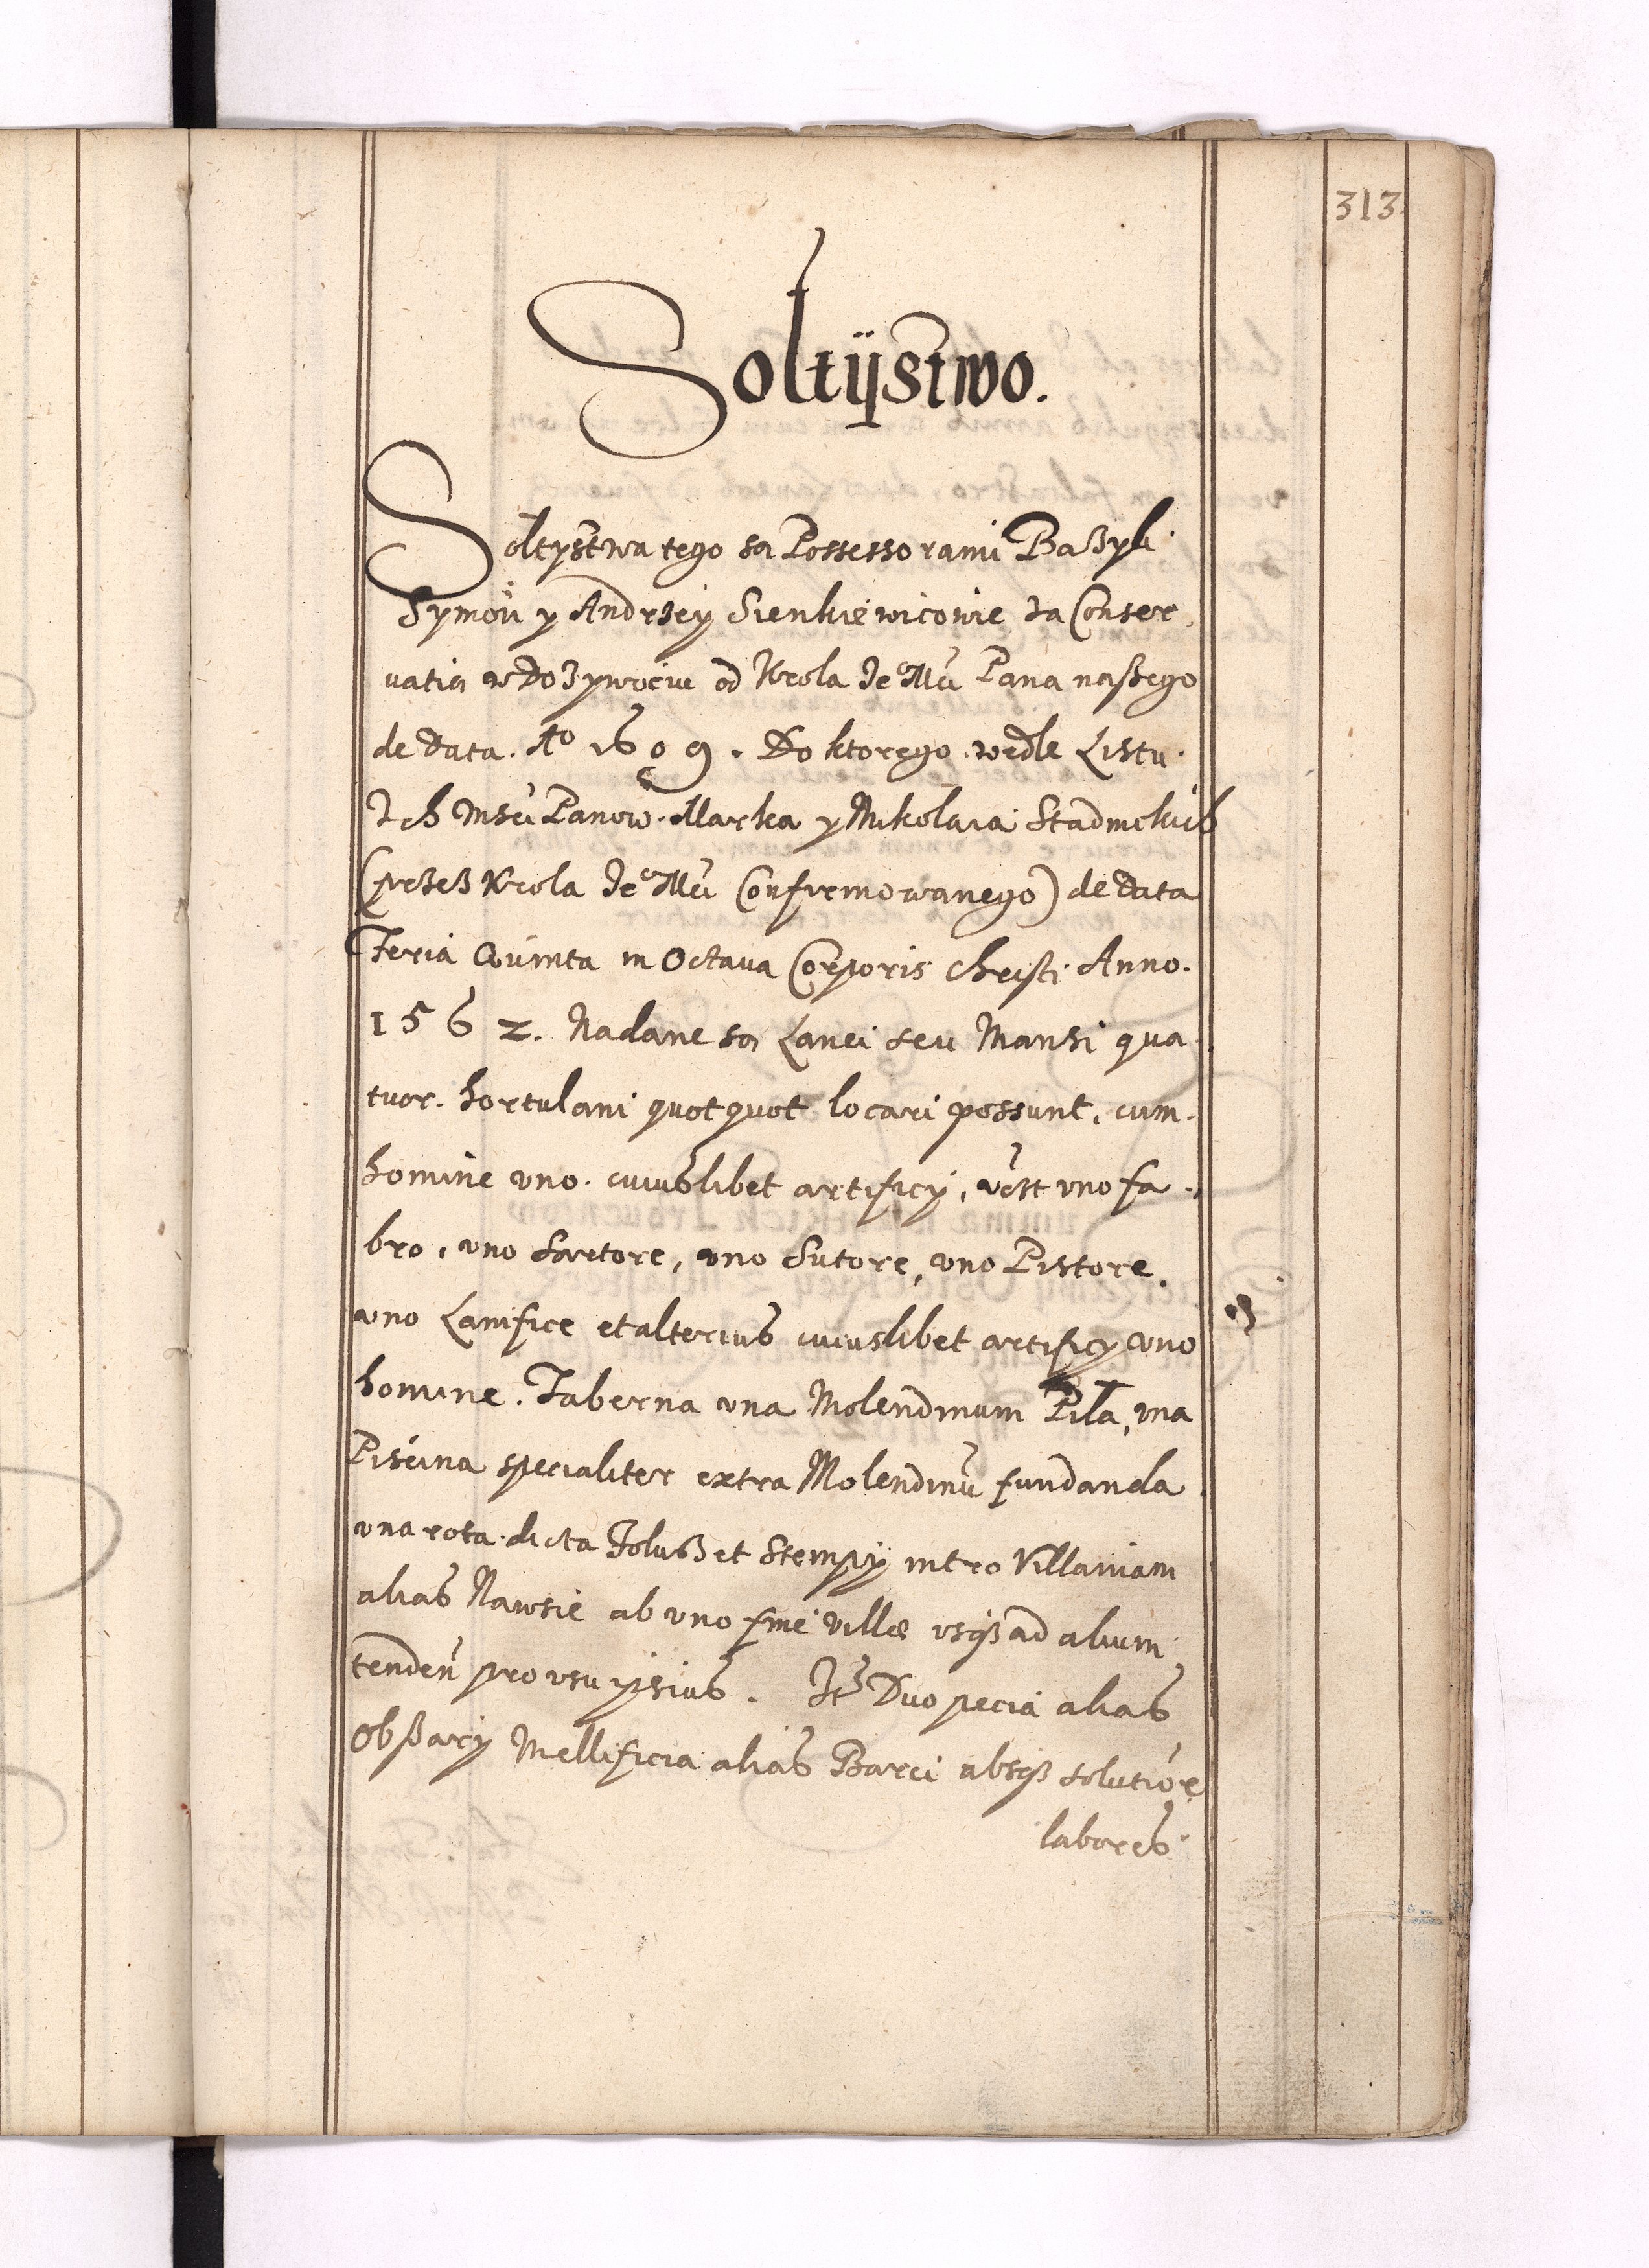 313.
Sołtÿstwo.
Sołtystwa tego są Possessorami Baßyli
Symon y Andrzey Sienkiewicowie za Conser
uatią w Dożywociu od Krola Je° Mći Pana naßego
de data. A° 1609. Do ktorego wedle Listu
Ich Msći Panow Marka y Mikolaia Stadnickich
(przeß Krola Je° Mći Confirmowanego) de data
Feria Quinta in Octaua Corporis Christi Anno.
1562. Nadane są Lanei seu Mansi qua
tuor. hortulani quotquot locari possunt, cum
homine vno cuiuslibet artificy, vt est vno fa
bro, vno Sartore, vno Sutore, vno Pistore,
vno Lanifice et alterius cuiuslibet artificy vno
homine. Taberna vna Molendinum Piła, vna
Piscina specialiter extra Molendinũ fundanda
vna rota dicta Foluß et Stempÿ intro Villaniam
alias Nawsie ab vno fine villæ vsqß ad alium
tendeñ pro vsu ipsius. It Duo pecia alias
Obßary Mellificia alias Barci absqß solutiõe
labores